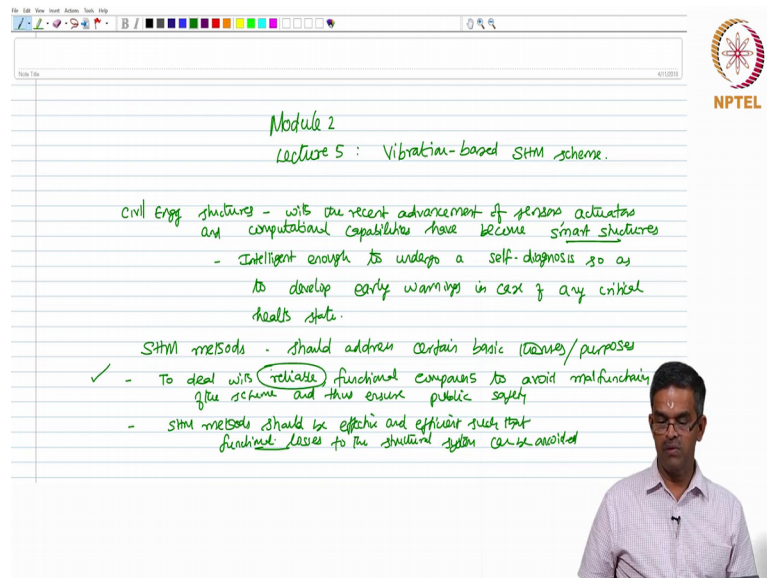 File Edit View Insert Actions Tools Help
B I
Note Title
4/11/2018
NPTEL
Module 2
Lecture 5 : Vibration-based SHM scheme.
Civil Engg structures - with the recent advancement of sensors actuators
and computational capabilities have become smart structures
- Intelligent enough to undergo a self-diagnosis so as
to develop early warnings in case of any critical
health state.
SHM methods - should address certain basic issues/purposes
- To deal with reliable functional components to avoid malfunctioning
of the scheme and thus ensure public safety
- SHM methods should be effective and efficient such that
functional losses to the structural system can be avoided